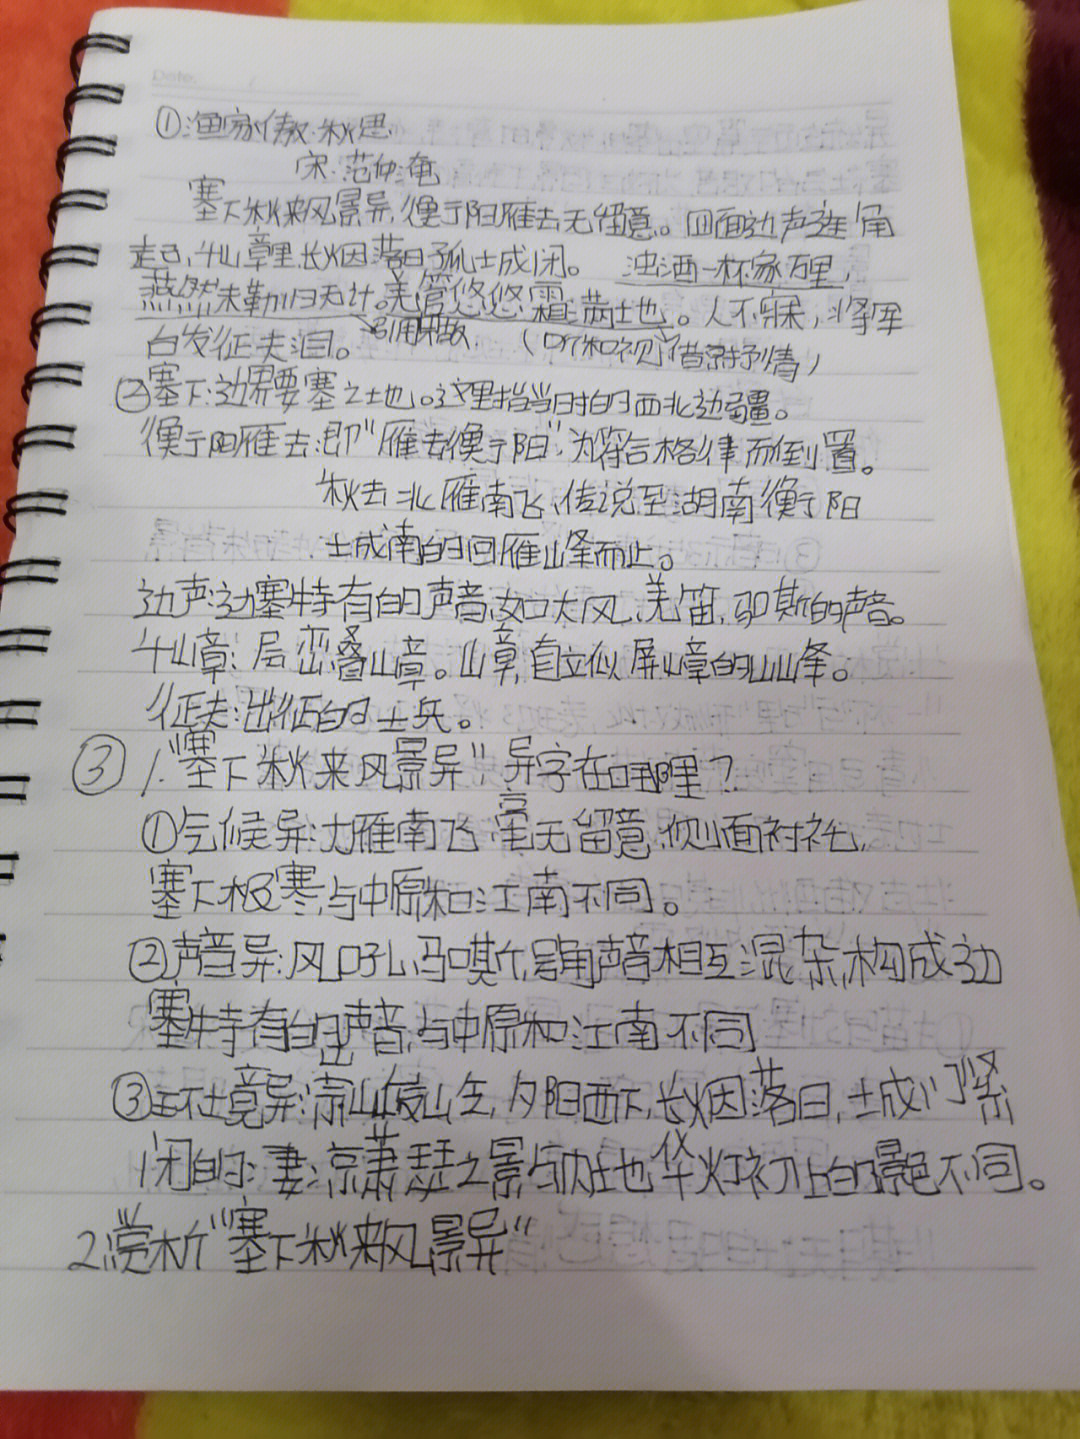 ①渔家傲·秋思
宋·范仲淹
塞下秋来风景异,衡阳雁去无留意。四面边声连角
起,千山章里,长烟落日孤城闭。 浊酒一杯家万里,
燕然未勒归无计。羌管悠悠霜满地。人不寐,将军
白发征夫泪。 引用典故. (听和视)借景抒情)
②塞下:边界要塞之地。这里指当时的西北边疆。
衡阳雁去:即“雁去衡阳”,为符合格律而倒置。
秋去北雁南飞,传说至湖南衡阳
城南的回雁峰而止。
边声:边塞特有的声音,如大风、羌笛,马嘶的声音。
千嶂:层峦叠嶂。嶂,直立似屏嶂的山峰。
征夫:出征的士兵。
③ 1.“塞下秋来风景异”,异字在哪里?
①气候异:大雁南飞毫无留意,侧面衬托,
塞下极寒,与中原和江南不同。
②声音异:风吼,马嘶,号角声音相互混杂,构成边
塞特有的声音,与中原和江南不同
③环境异:崇山峻岭,夕阳西下,长烟落日,城门紧
闭的凄凉萧瑟之景与内地华灯初上的景色不同。
2.赏析“塞下秋来风景异”